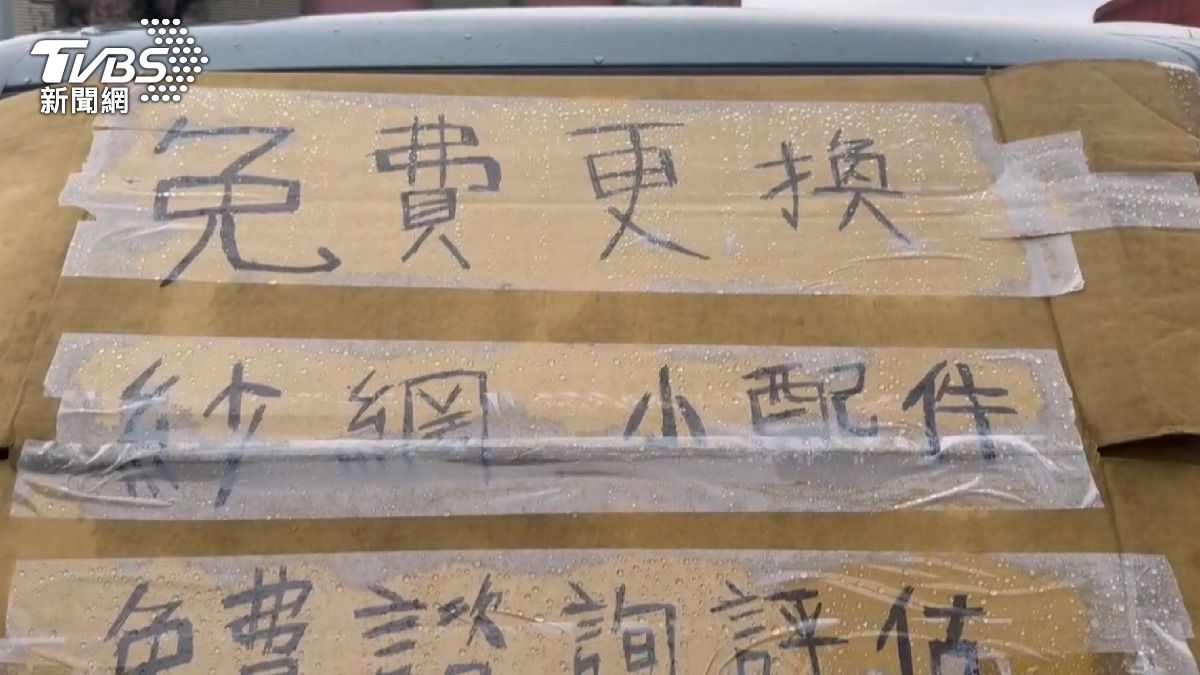 TVBS
新聞網
免費更換
紗網小配件
免費諮詢評估